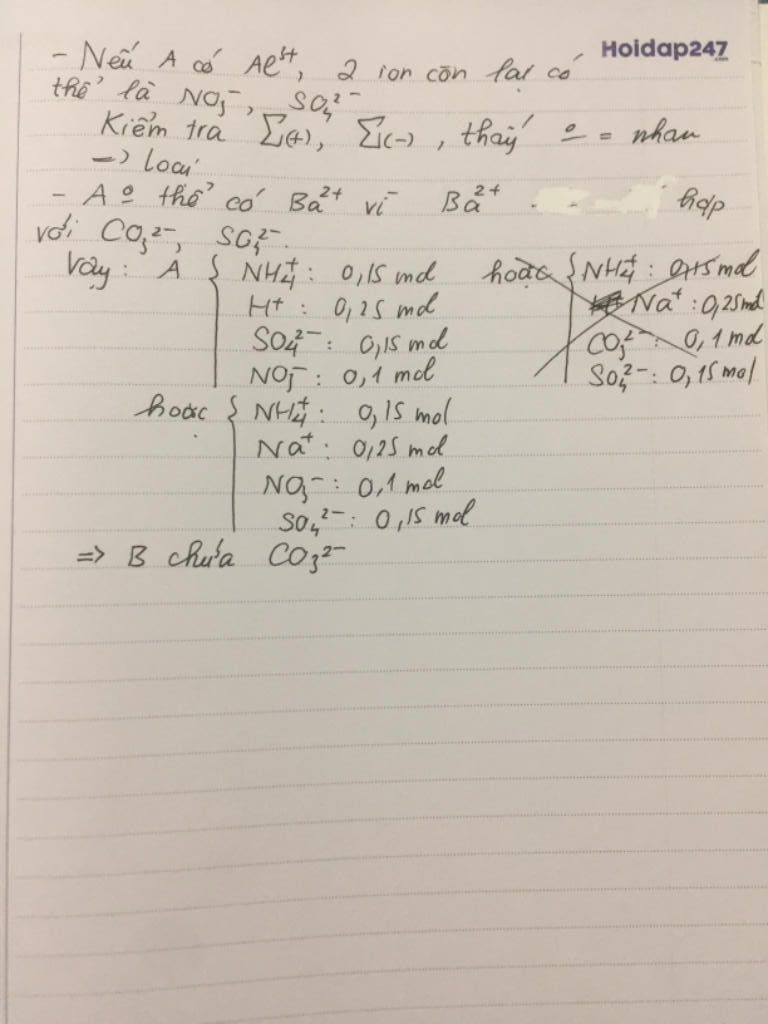 Hoidap247
.com
- Nếu A có Al³⁺, 2 ion còn lại có
thể là NO₃⁻, SO₄²⁻
Kiểm tra Σ(+), Σ(-), thấy o̲ = nhau
→ loại
- A o̲ thể có Ba²⁺ vì Ba²⁺ hợp
với CO₃²⁻, SO₄²⁻.
Vậy: A { NH₄⁺: 0,15 mol hoặc { NH₄⁺: 0,15 mol
H⁺: 0,25 mol Na⁺: 0,25 mol
SO₄²⁻: 0,15 mol CO₃²⁻: 0,1 mol
NO₃⁻: 0,1 mol SO₄²⁻: 0,15 mol
hoặc { NH₄⁺: 0,15 mol
Na⁺: 0,25 mol
NO₃⁻: 0,1 mol
SO₄²⁻: 0,15 mol
=> B chứa CO₃²⁻